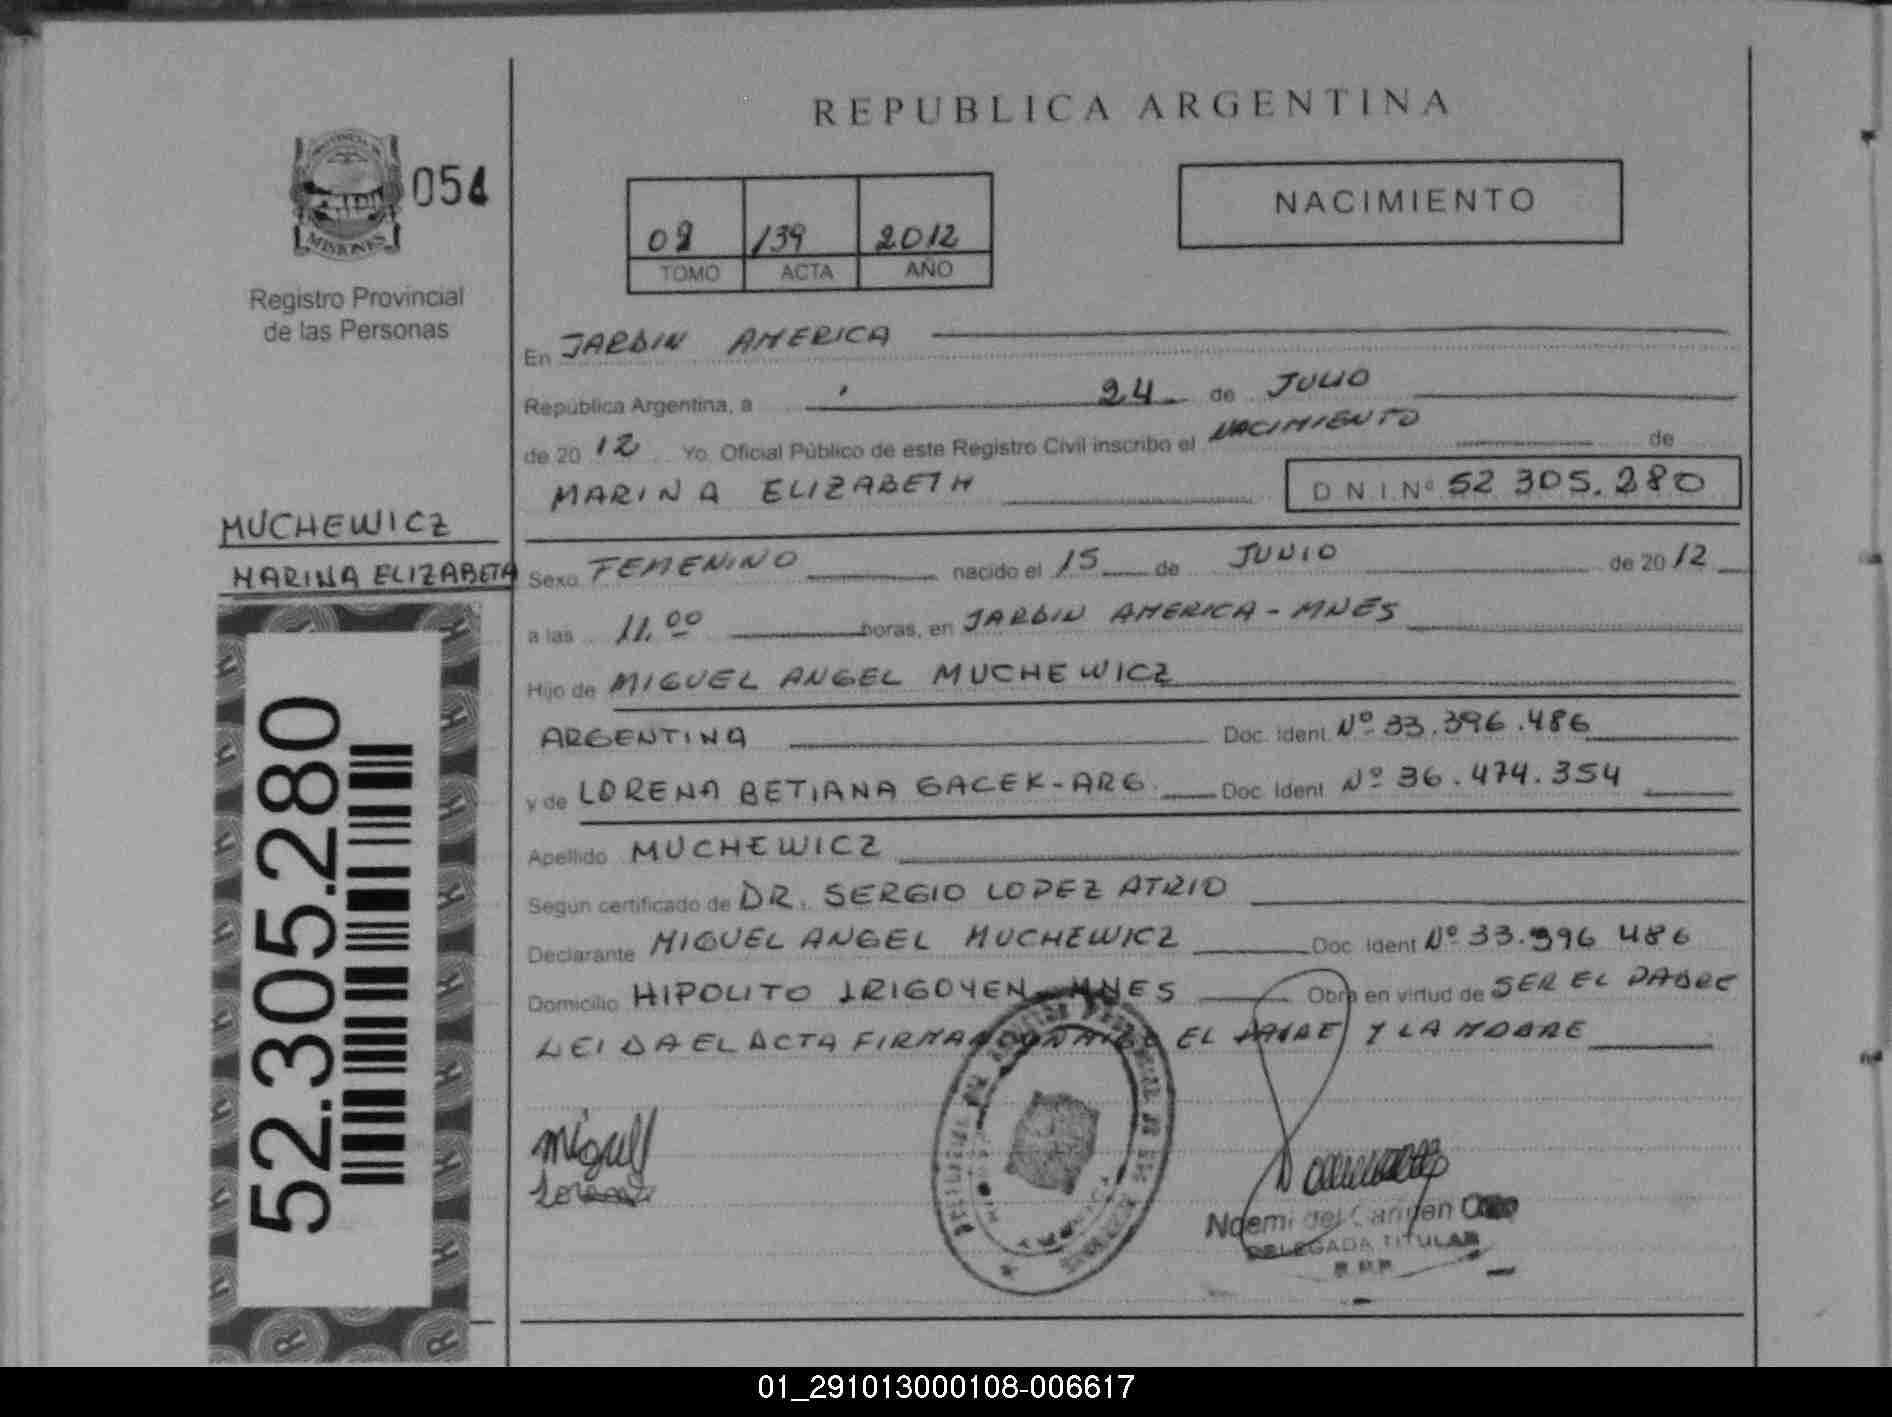 REPUBLICA ARGENTINA
MISIONES
054
Registro Provincial
de las Personas
NACIMIENTO
09 139 2012
TOMO ACTA AÑO
En JARDIN AMERICA
República Argentina, a 24 de JULIO
de 20 12 Yo. Oficial Público de este Registro Civil inscribo el NACIMIENTO de
MARINA ELIZABETH D N I Nº 52 305.280
MUCHEWICZ
MARINA ELIZABETH
Sexo FEMENINO nacido el 15 de JUNIO de 20 12
a las 11.00 horas, en JARDIN AMERICA - MNES
Hijo de MIGUEL ANGEL MUCHEWICZ
ARGENTINA Doc. Ident Nº 33.396.486
y de LORENA BETIANA GACEK - ARG. Doc. Ident Nº 36.474.354
Apellido MUCHEWICZ
Según certificado de DR. SERGIO LOPEZ ATRIO
Declarante MIGUEL ANGEL MUCHEWICZ Doc. Ident Nº 33.396 486
Domicilio HIPOLITO IRIGOYEN - MNES Obra en virtud de SER EL PADRE
LEIDA EL ACTA FIRMAN EL PADRE Y LA MADRE
52.305.280
Miguel
Lorena
Noemi del Carmen
DELEGADA TITULAR
R.P.P.
01_291013000108-006617